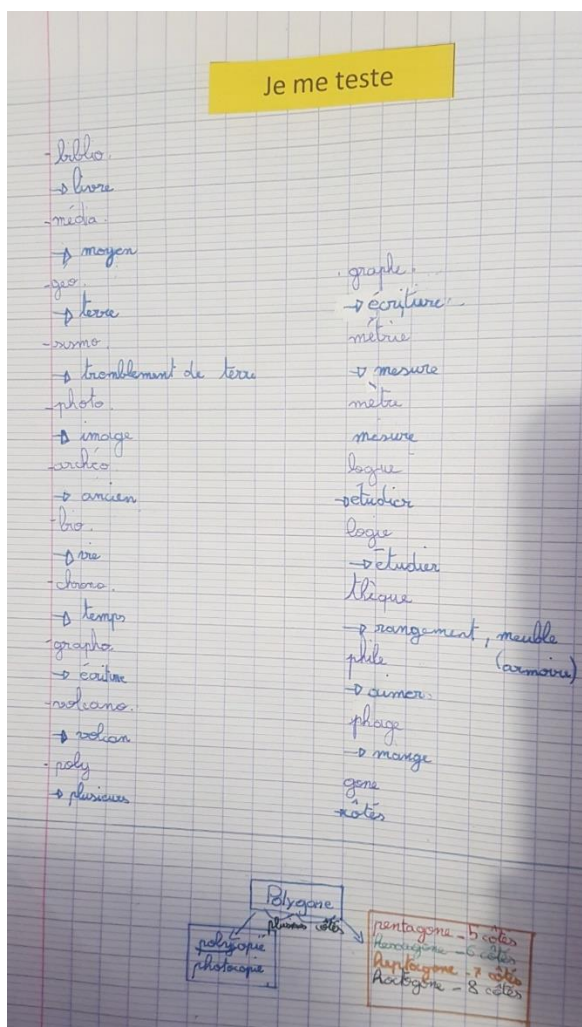 Je me teste
-biblio.
→ livre
-média.
→ moyen
-géo.
→ terre
-sismo.
→ tromblement de terre
-photo.
→ image
-archéo.
→ ancien
-bio.
→ vie
-chrono.
→ temps
-grapho.
→ écriture
-volcano.
→ volcan
-poly
→ plusieurs
. graphe.
→ écriture.
métrie
→ mesure
mètre
mesure
logue
→étudier
logie
→ étudier
thèque
→ rangement, meuble
(armoire)
phile
→ aimer.
phage
→ mange
gone
→côtés
Polygone
plusieurs côtés
polycopie
photocopie
pentagone - 5 côtés
Hexagone - 6 côtés
Heptagone - 7 côtés
Hoctogone - 8 côtés